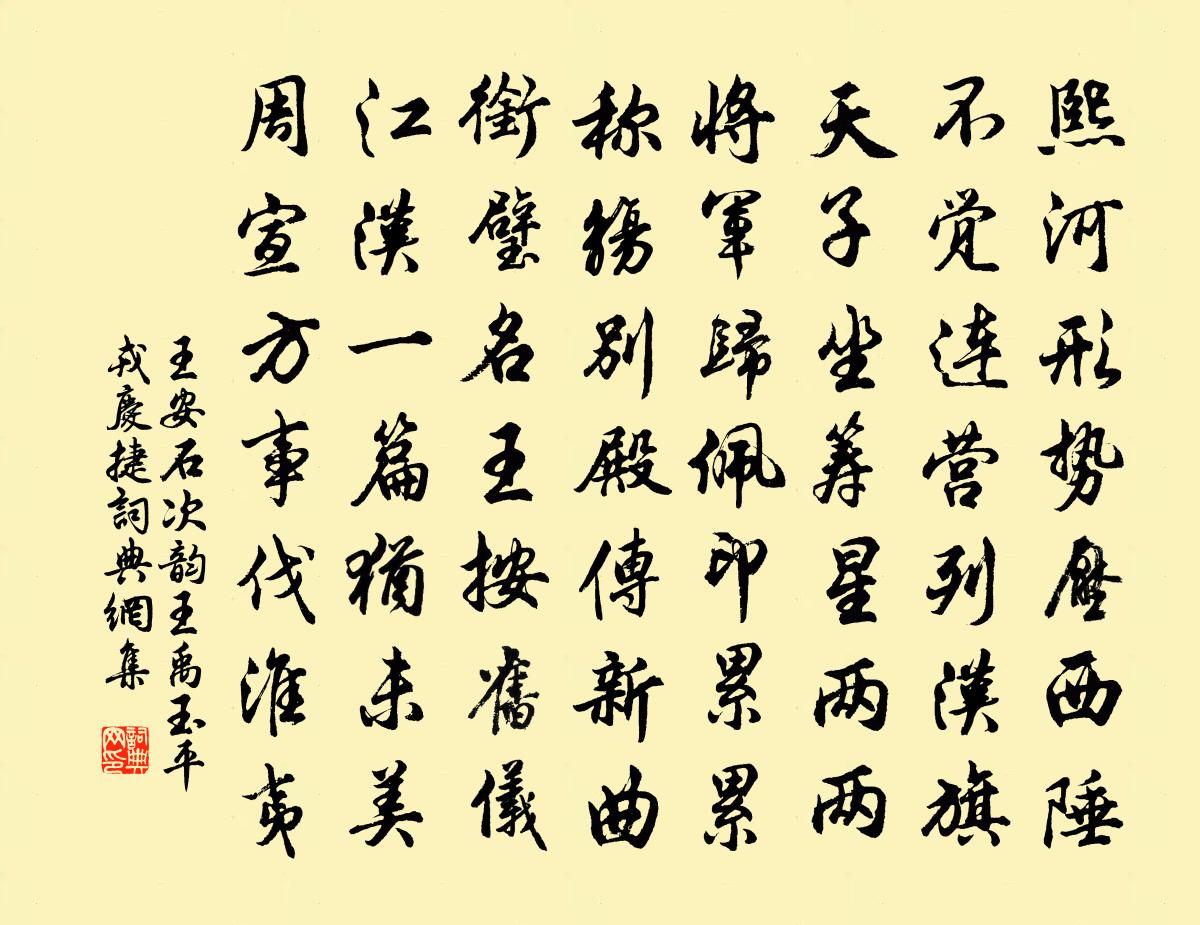 熙河形势壓西陲
不觉连营列漢旗
天子坐筹星两两
将軍歸佩印累累
称觞别殿傳新曲
銜璧名王按舊儀
江漢一篇猶未美
周宣方事伐淮夷
王安石次韵王禹玉平
戎慶捷詞典網集
詞典网印